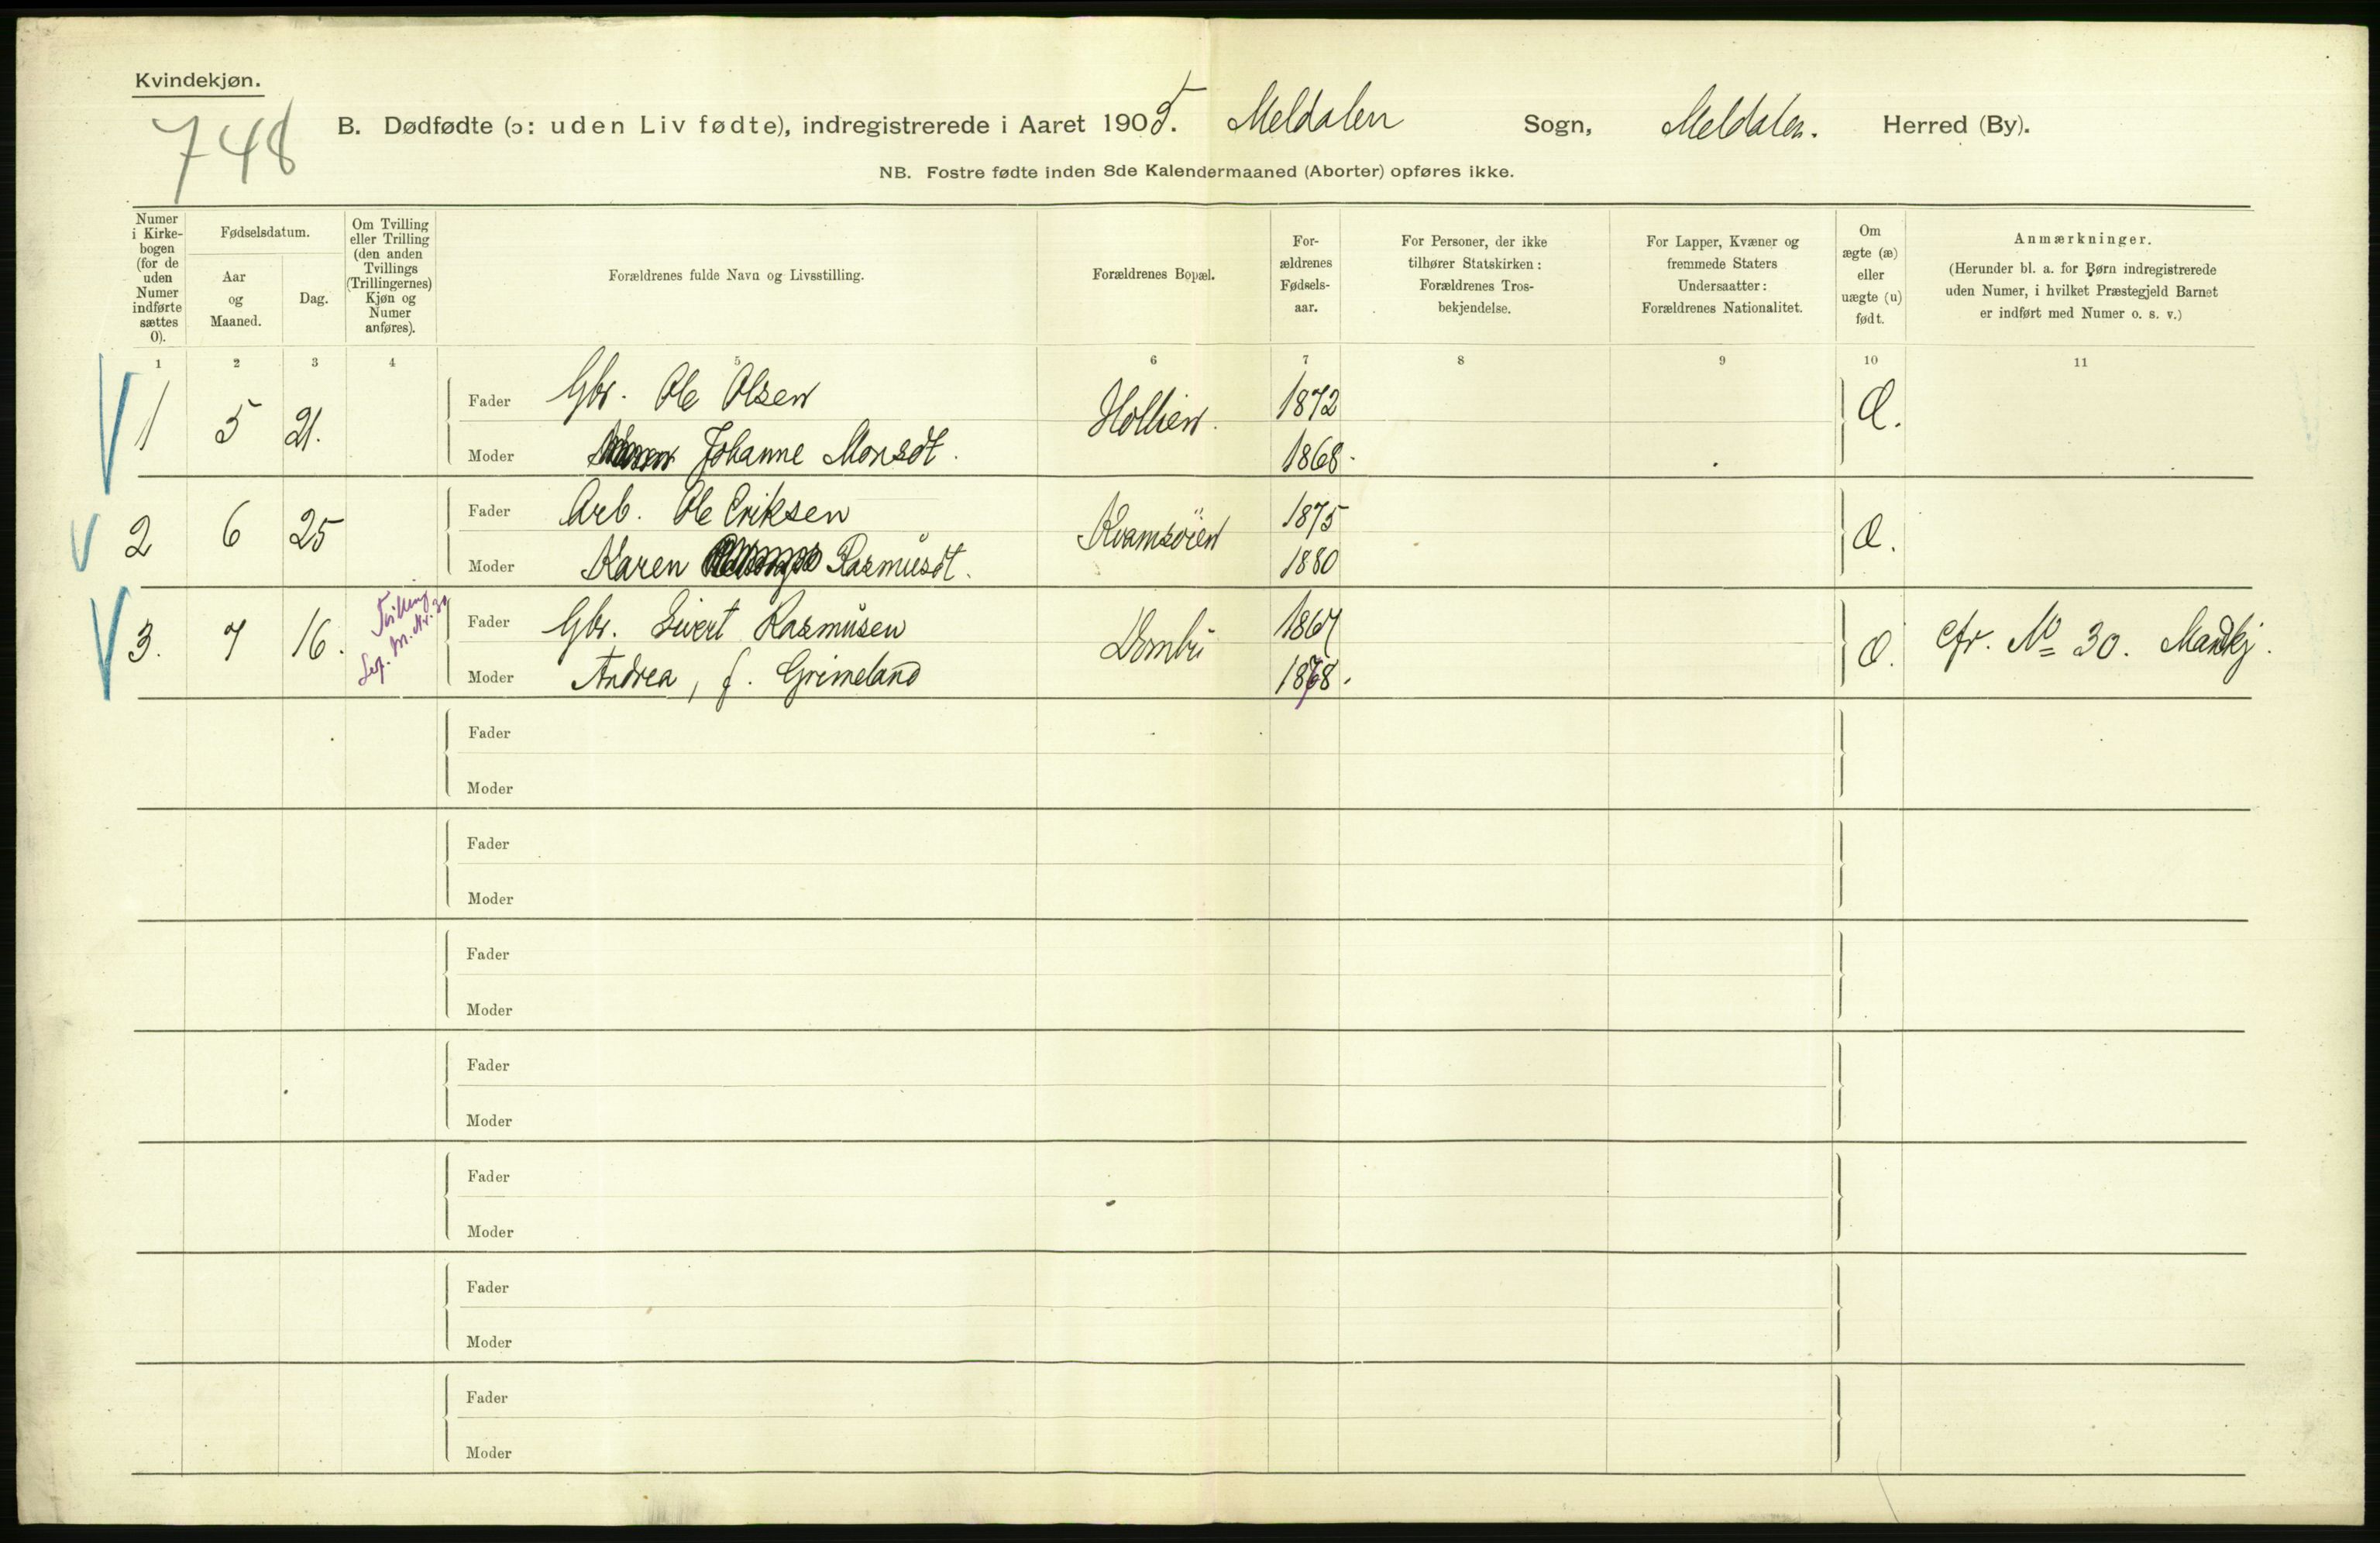 Kvindekjøn.
748
B. Dødfødte (ɔ: uden Liv fødte), indregistrerede i Aaret 1905. Meldalen Sogn, Meldalen. Herred (By).
NB. Fostre fødte inden 8de Kalendermaaned (Aborter) opføres ikke.
Numer i Kirkebogen (for de uden Numer indførte sættes 0).
Fødselsdatum.
Aar og Maaned.
Dag.
Om Tvilling eller Trilling (den anden Tvillings (Trillingernes) Kjøn og Numer anføres).
Forældrenes fulde Navn og Livsstilling.
Forældrenes Bopæl.
Forældrenes Fødselsaar.
For Personer, der ikke tilhører Statskirken: Forældrenes Trosbekjendelse.
For Lapper, Kvæner og fremmede Staters Undersaatter: Forældrenes Nationalitet.
Om ægte (æ) eller uægte (u) født.
Anmærkninger.
(Herunder bl. a. for Børn indregistrerede uden Numer, i hvilket Præstegjeld Barnet er indført med Numer o. s. v.)
1 2 3 4 5 6 7 8 9 10 11
1 5 21. Fader Gbr. Ole Olsen Hollien. 1872 Æ.
Moder Johanne Monsdt. 1868.
2 6 25 Fader Arb. Ole Eriksen Kvamsøien 1875 Æ.
Moder Karen Rasmusdt. 1880
3. 7 16. Tvilling Lev. M. Nr. 30 Fader Gbr. Sivert Rasmusen 1867 Æ. cfr. No 30. Mandkj.
Moder Andrea, f. Grimeland 1868.
Fader
Moder
Fader
Moder
Fader
Moder
Fader
Moder
Fader
Moder
Fader
Moder
Fader
Moder